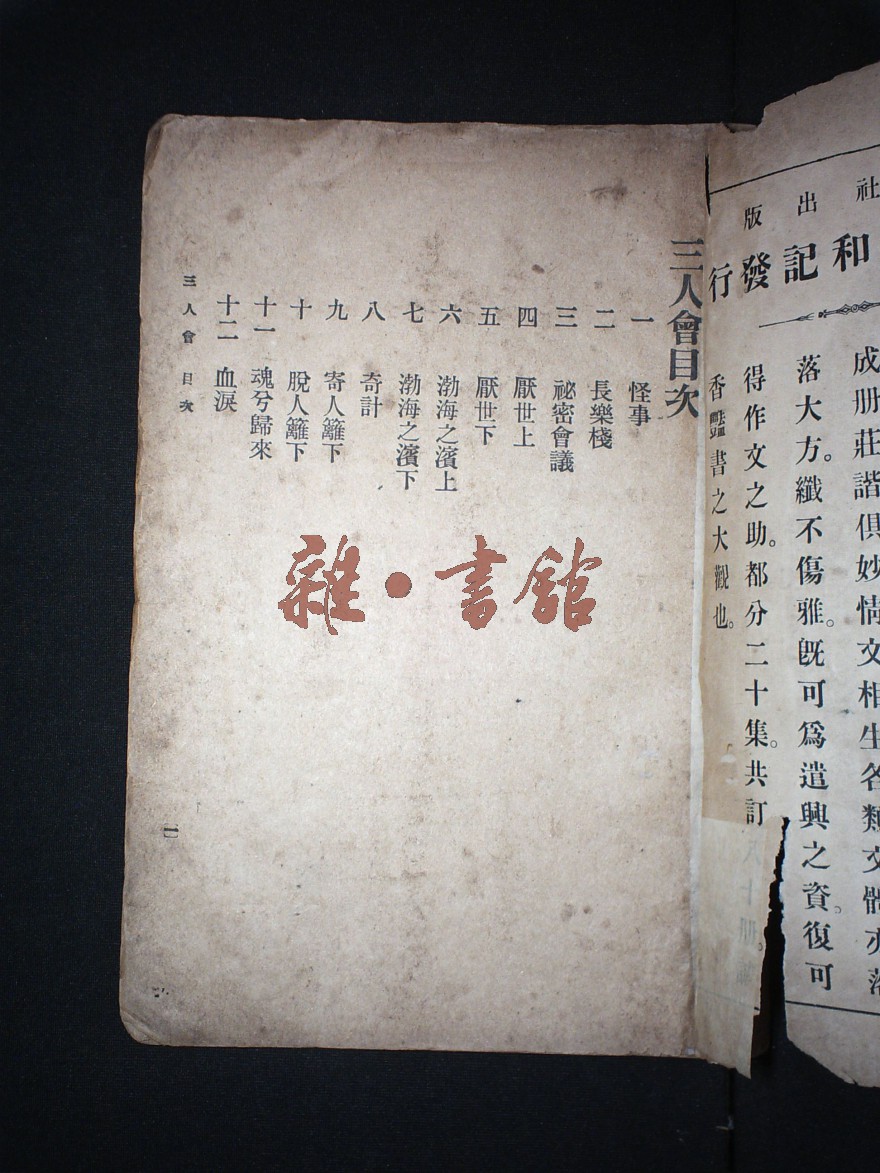 社出版
和記發行
成册莊諧俱妙情文相生各類文體亦落
落大方。纖不傷雅。既可爲遣興之資。復可
得作文之助。都分二十集。共訂
香豔書之大觀也。
三人會目次
一 怪事
二 長樂棧
三 祕密會議
四 厭世上
五 厭世下
六 渤海之濱上
七 渤海之濱下
八 奇計
九 寄人籬下
十 脫人籬下
十一 魂兮歸來
十二 血淚
三人會 目次
一
雜·書館